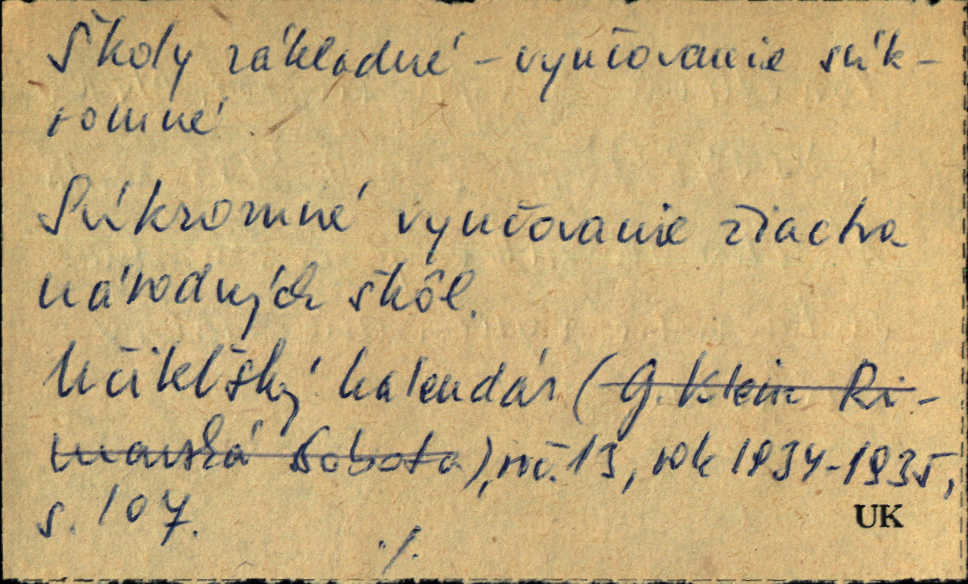 Školy základné – vyučovanie súk-
romné
Súkromné vyučovanie žiactva
národných škôl.
Učiteľský kalendár (G. Klein Ri-
mavská Sobota), roč. 13, rok 1934-1935,
s. 107.
UK
./.